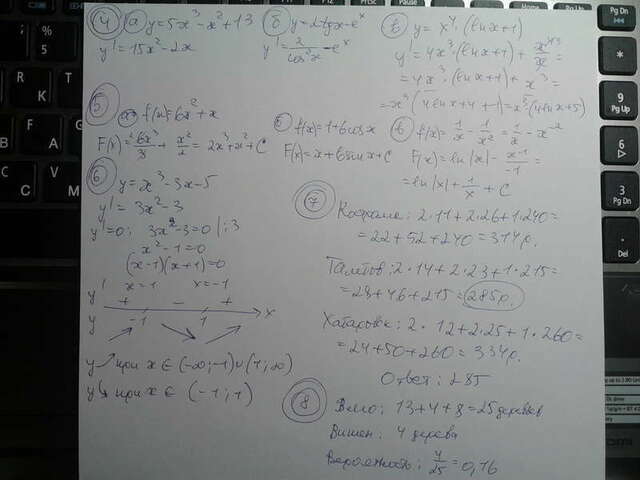 4 а) y=5x³-x²+13
y'=15x²-2x
б) y=2tgx-e^x
y'=2/cos²x-e^x
в) y=x⁴·(lnx+1)
y'=4x³·(lnx+1)+x⁴/x=
=4x³·(lnx+1)+x³=
=x³(4lnx+4+1)=x³·(4lnx+5)
5
а) f(x)=6x²+x
F(x)=6x³/3+x²/2=2x³+x²+C
б) f(x)=1+6cosx
F(x)=x+6sinx+C
в) f(x)=1/x-1/x²=1/x-x⁻²
F(x)=ln|x|-x⁻¹/-1=
=ln|x|+1/x+C
6
y=x³-3x-5
y'=3x²-3
y'=0; 3x²-3=0 |:3
x²-1=0
(x-1)(x+1)=0
x=1 x=-1
y' + - +
y -1 1 x
y ↗ при x∈(-∞;-1)∪(1;∞)
y ↘ при x∈(-1;1)
7
2·11+2·26+1·240=
=22+52+240=314р.
2·14+2·23+1·215=
=28+46+215=285р.
2·12+2·25+1·260=
=24+50+260=334р.
Ответ: 285
8
Всего: 13+4+8=25 деревьев
Вишен: 4 дерева
Вероятность: 4/25=0,16
Pg Dn
9
Pg Up
6
3
Pg Dn
.
Del